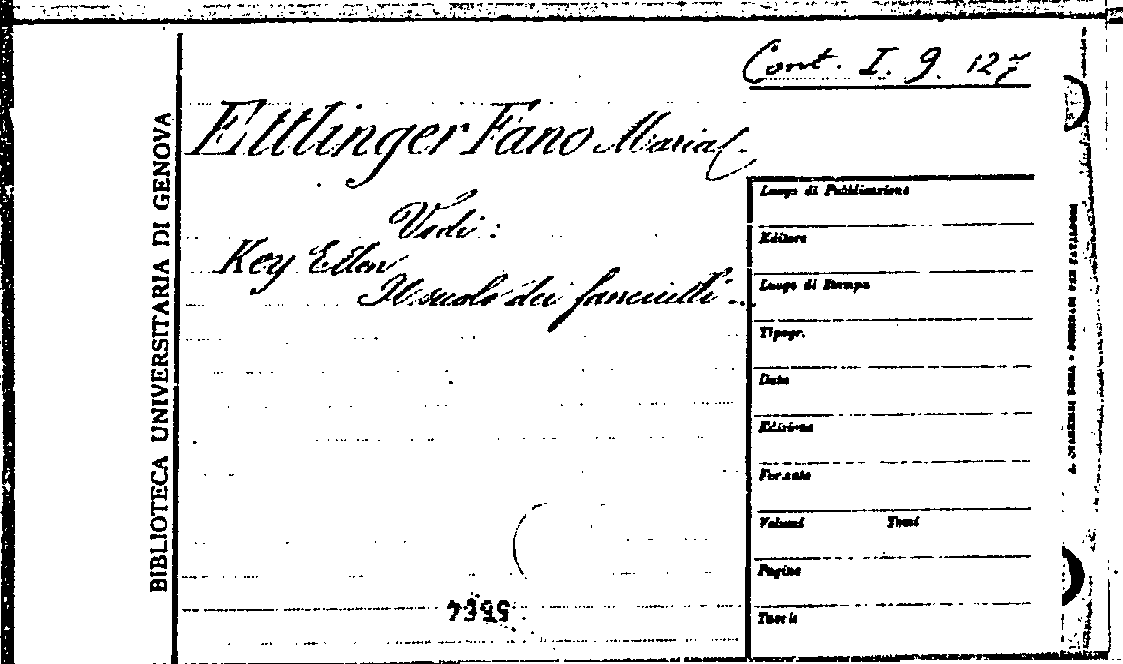 Cont. I. 9. 127
Ettlinger Fano Maria
Vedi :
Key Ellen
Il suolo dei fanciulli ...
BIBLIOTECA UNIVERSITARIA DI GENOVA
Luogo di Pubblicazione
Editore
Luogo di Stampa
Tipogr.
Data
Edizione
Formato
Volumi Tomi
Pagine